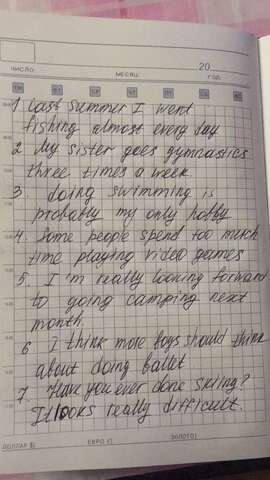 20
ЧИСЛО:
МЕСЯЦ:
ГОД
1 Last summer I went
fishing almost every day
2 My sister goes gymnastics
three times a week
3 doing swimming is
probably my only hobby
4. Some people spend too much
time playing video games
5. I'm really looking forward
to going camping next
month
6 I think more boys should think
about doing ballet
7. Have you ever done skiing?
It looks really difficult.
ДОЛЛАР $|
ЕВРО €|
ЗОЛОТО|